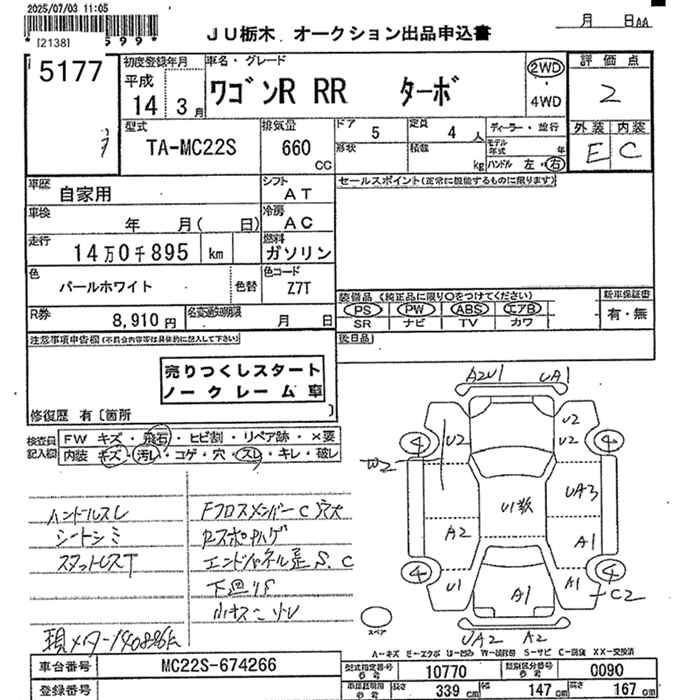 2025/07/03 11:05
[2138]
JU栃木 オークション出品申込書
月 日AA
5177
初度登録年月
平成
14 3月
車名・グレード
ワゴンR RR ターボ
2WD
4WD
評価点
2
外装 内装
E C
型式
TA-MC22S
排気量
660 CC
ドア 5
定員 4人
形状
積載 kg
ディーラー・並行
モデル年式 年
ハンドル 左・右
車歴
自家用
シフト
AT
セールスポイント(正常に機能するものに限ります)
車検
年 月( 日)
冷房
AC
走行
14万0千895 km
燃料
ガソリン
色
パールホワイト
色替
色コード
Z7T
装備品 (純正品に限り〇をつけてください)
PS PW ABS エアB
SR ナビ TV カワ
新車保証書
有・無
R券
8,910円
名変通知期限
月 日
後日品
注意事項申告欄(不具合内容等は具体的に記入して下さい)
売りつくしスタート
ノークレーム車
修復歴 有〔箇所 〕
検査員記入欄
FW キズ・飛石・ヒビ割・リペア跡・×要
内装 キズ・汚レ・コゲ・穴・スレ・キレ・破レ
ハンドルスレ
シートシミ
スタットレスT
FクロスメンバーC穴大
エンドパネル是S.C
下廻りS
現メーター140886km
A2U1 UA1
4 U2 U2 U2 4
W2
U1数
UA3
A2 A1
4 U1 A1 A1 4
C2
UA2 A2
スペア
A-キズ E-エクボ U-凹み W-補修跡 S-サビ C-腐蝕 XX-交換済
車台番号
MC22S-674266
型式指定番号
10770
類別区分番号
0090
登録番号
長さ 339 cm
幅 147 cm
高さ 167 cm